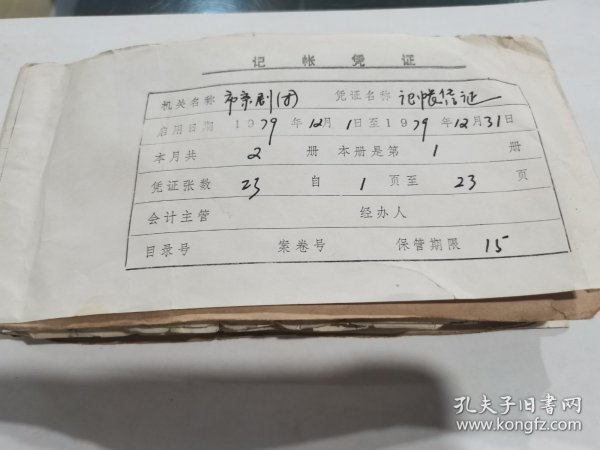 记帐凭证
机关名称 市京剧(团) 凭证名称 记帐凭证
启用日期 1979年12月1日至1979年12月31日
本月共 2 册 本册是第 1 册
凭证张数 23 自 1 页至 23 页
会计主管 经办人
目录号 案卷号 保管期限 15
孔夫子旧书网
www.kongfz.com